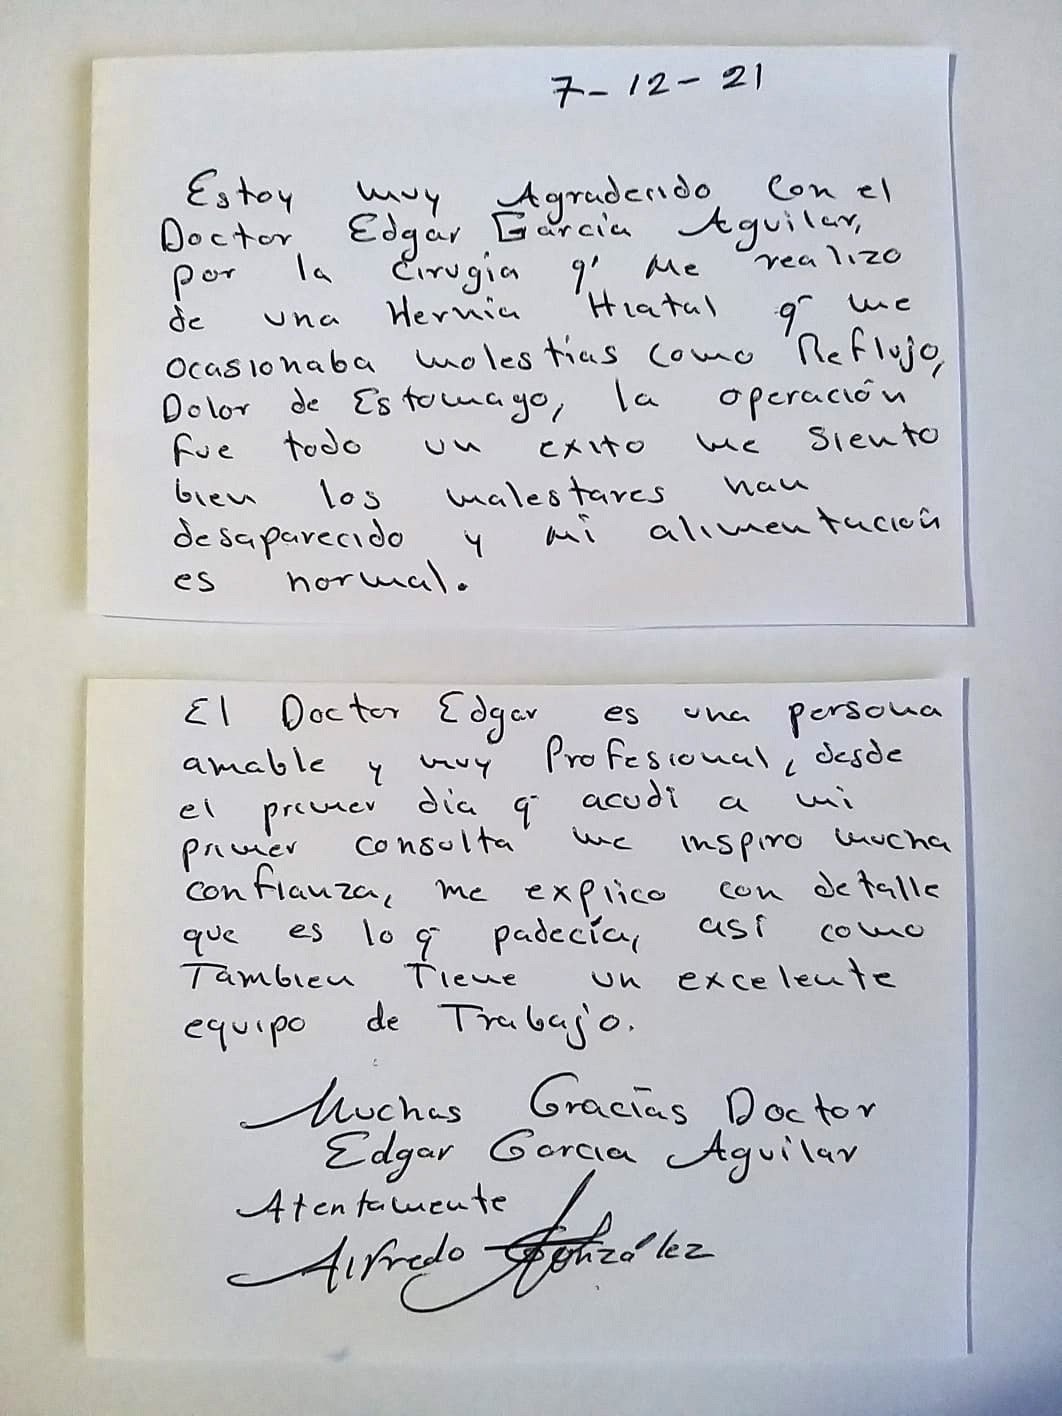 7-12-21
Estoy muy Agradecido con el
Doctor Edgar García Aguilar,
por la cirugia q' me realizo
de una Hernia Hiatal q' me
ocasionaba molestias como Reflujo,
Dolor de Estomago, la operación
fue todo un exito me siento
bien los malestares han
desaparecido y mi alimentación
es normal.
El Doctor Edgar es una persona
amable y muy Profesional, desde
el primer día q' acudí a mi
primer consulta me inspiro mucha
confianza, me explico con detalle
que es lo q' padecía, así como
Tambien Tiene un excelente
equipo de Trabajo.
Muchas Gracias Doctor
Edgar Garcia Aguilar
Atentamente
Alfredo González